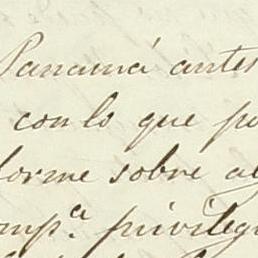 Panamá antes
con lo que po
forme sobre al
omp.ª privileg